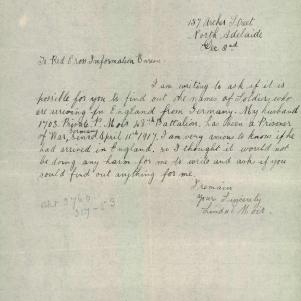 137 Archer Street
North Adelaide
Dec 3rd
To Red Cross Information Bureau.
I am writing to ask if it is
possible for you to find out the names of Soldiers who
are arriving in England from Germany. My husband
1703 Private P. 48th Battalion, has been a Prisoner
of War, Germany since April 11th 1917, I am very anxious to know if he
had arrived in England, so I thought it would not
be doing any harm for me to write and ask if you
could find out anything for me.
I remain
Yours Sincerely
Linda